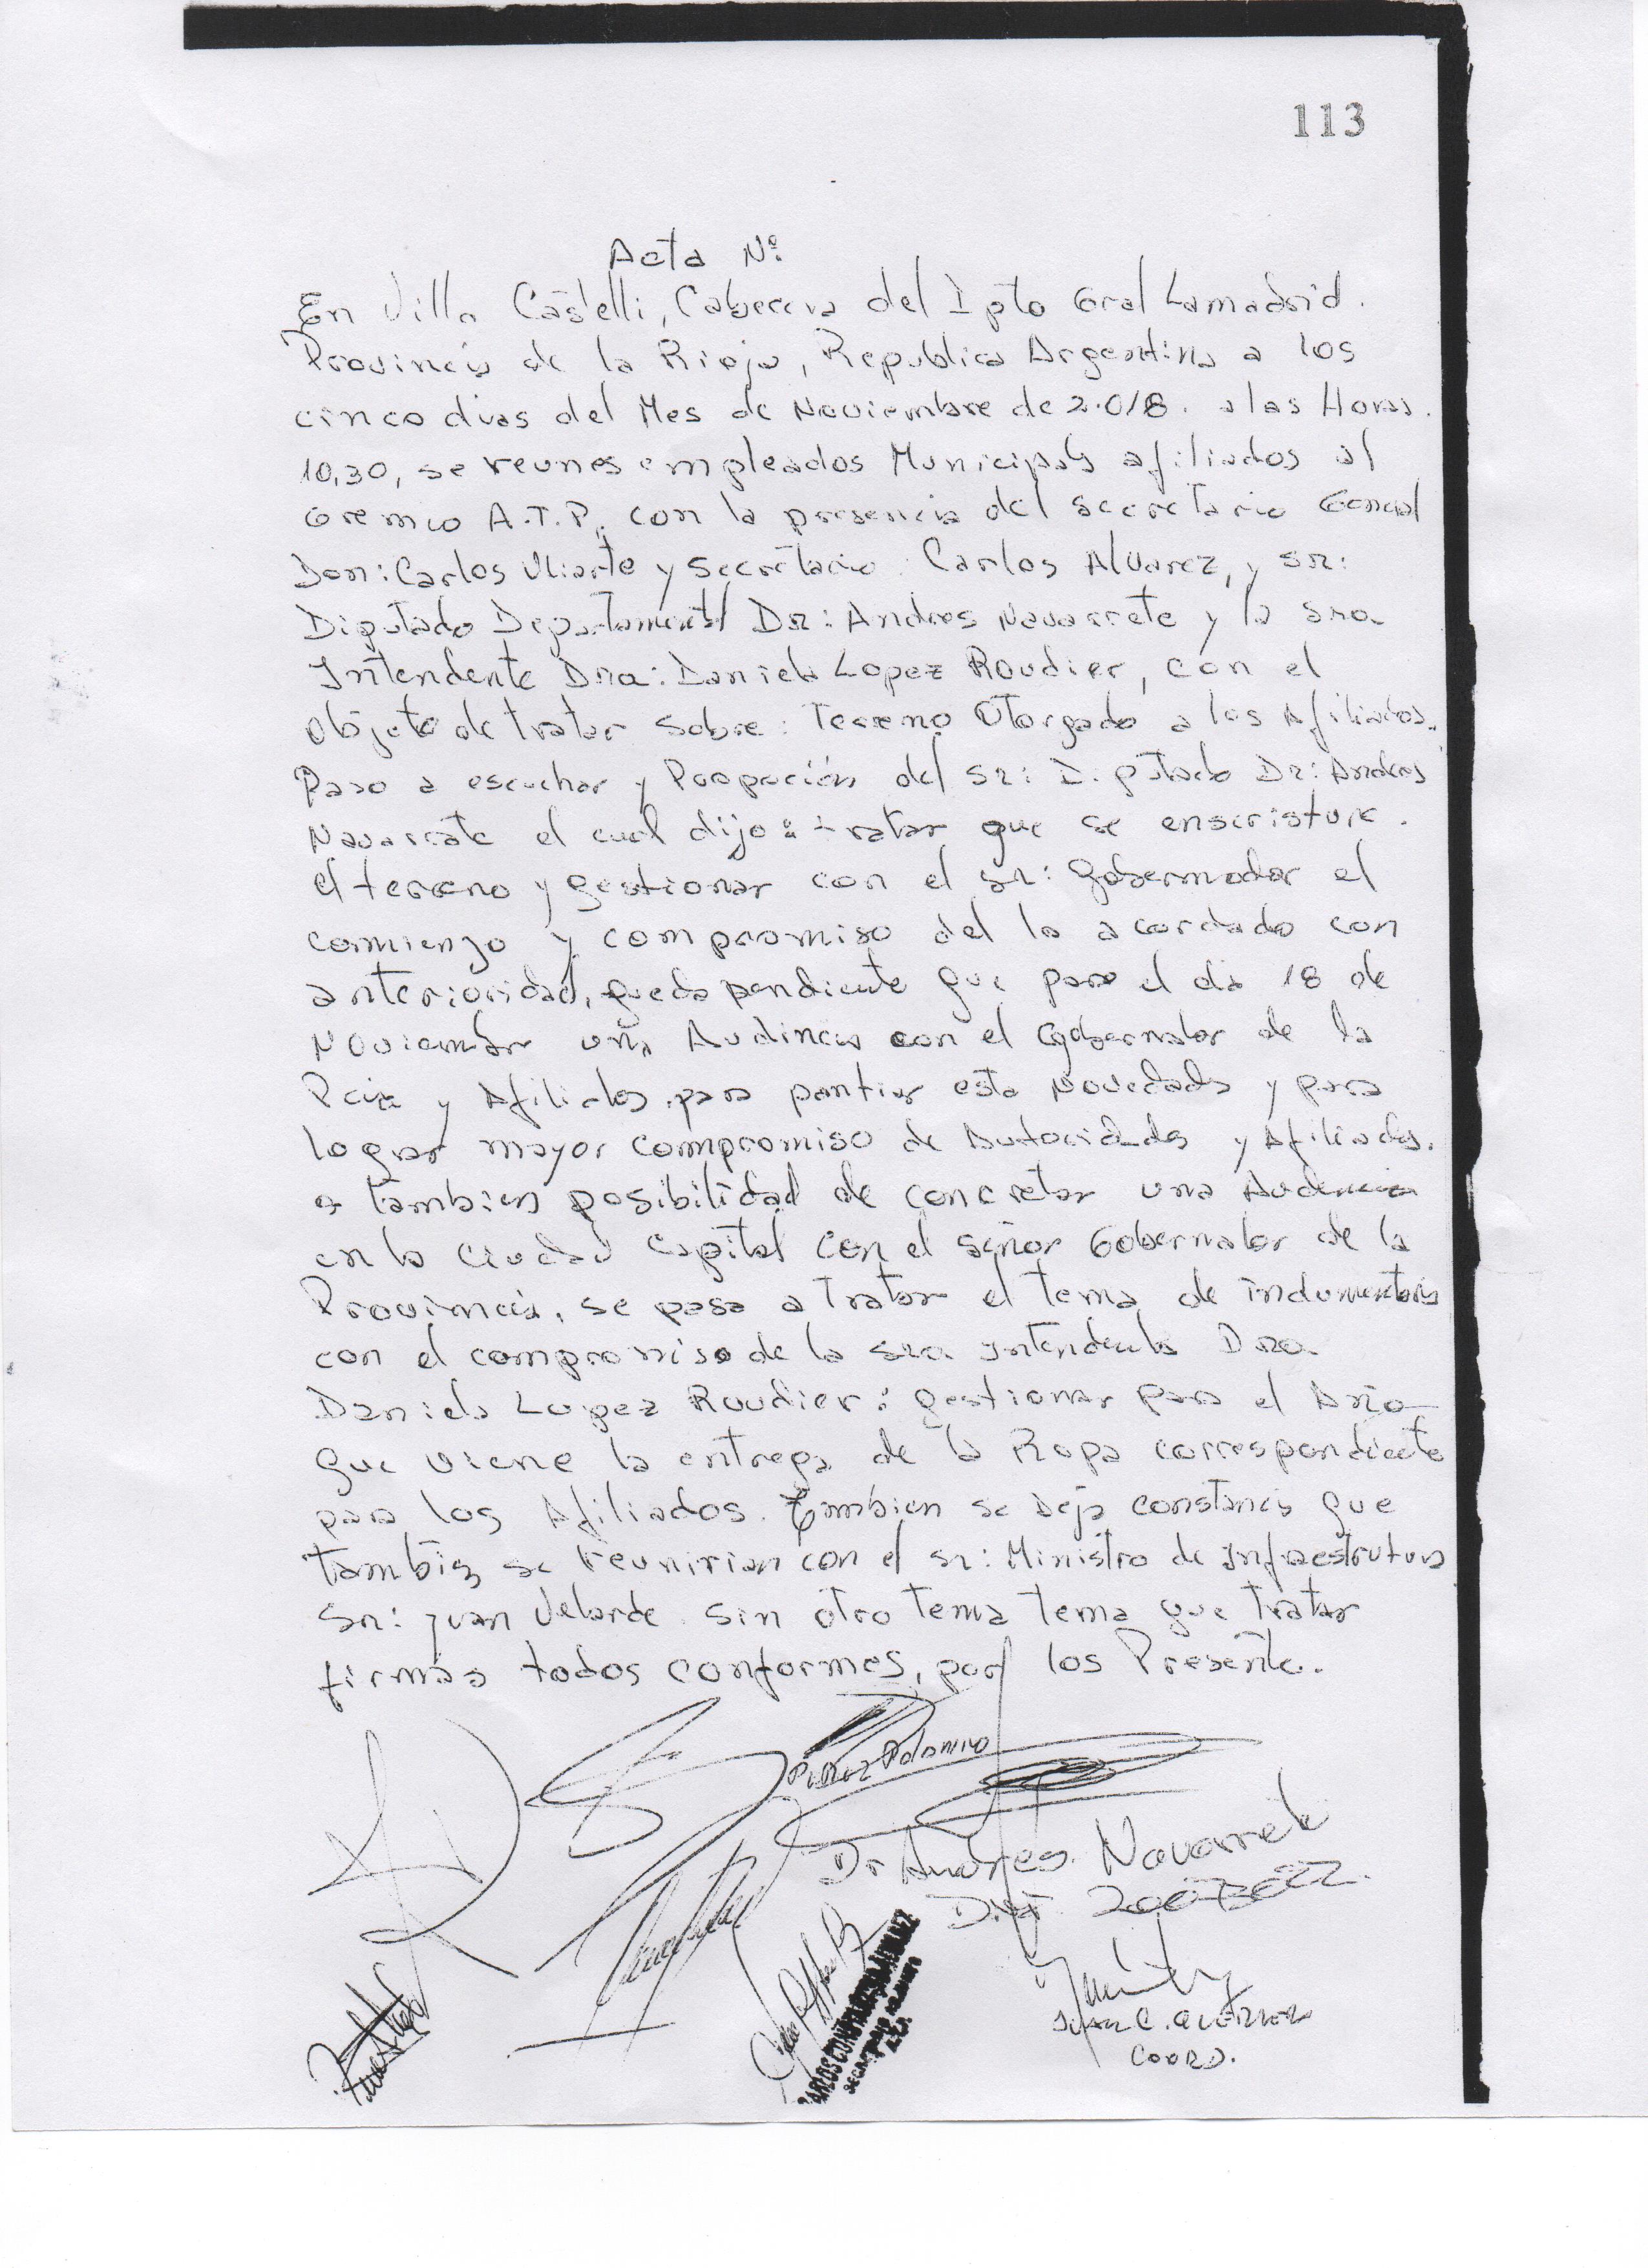 113
Acta Nº:
En Villa Castelli, Cabecera del Dpto Gral Lamadrid.
Provincia de la Rioja, Republica Argentina a los
cinco dias del Mes de Noviembre de 2.018. a las Horas.
10,30, se reunes empleados Municipals afiliados al
Gremio A.T.P. con la presencia del secretario General
Don: Carlos Uliarte y Secretario: Carlos Alvarez, y sr:
Diputado Departamental Dr: Andres Navarrete y la sra.
Intendente Dra: Daniela Lopez Roudier, con el
Objeto de tratar Sobre: Terreno Otorgado a los Afiliados.
Paso a escuchar y Proposición del sr: Diputado Dr: Andres
Navarrete el cual dijo: tratar que se enscristure.
el terreno y gestionar con el sr: Gobernador el
comienzo y compromiso del lo acordado con
anterioridad, queda pendiente que para el dia 18 de
Noviembre una Audincia con el Gobernador de la
Pcia y Afiliados, para esta Novedads y para
lograr mayor compromiso de Autoridades y Afiliados.
tambien posibilidad de concretar una Audencia
en la Ciudad Capital con el señor Gobernador de la
Provincia, se pasa a Tratar el tema de indumentaria
con el compromiso de la sra Intendenta Dra.
Daniela Lopez Roudier: gestionar para el Año
que viene la entrega de la Ropa correspondiente
para los Afiliados. Tambien se Deja constancia que
tambien se reunirian con el sr: Ministro de Infraestrutura
Sr: Juan Velarde. sin otro tema tema que tratar
firmas todos conformes, por los Presente.
Dr Andres Navarrete
JUAN C.
COORD.